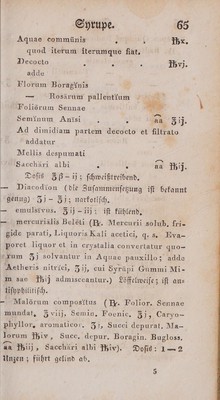 Syrupe. 65
Aquae commūnis . . ℔x.
quod iterum iterumque fiat.
Decocto . . . ℔vj.
adde
Florum Boragĭnis
— Rosārum pallentĭum
Foliōrum Sennae
Semĭnum Anīsi . . āā ℥ij.
Ad dimidiam partem decocto et filtrato
addatur
Mellis despumati
Sacchāri albi . . āā ℔ij.
Dosis ℥β – ij; schweißtreibend.
— Diacodĭon (die Zusammensetzung ist bekannt
genug) ʒj – ℥j; narkotisch.
— emulsivus. ℥ij – iij; ist kühlend.
— mercurialis Beléti (℞. Mercurii solub. fri-
gide parati, Liquoris Kali acetici, q. s. Eva-
poret liquor et in crystalia convertatur quo-
rum ʒj solvantur in Aquae pauxillo; adde
Aetheris nitrici, ʒij, cui Syrūpi Gummi Mi-
m sae ℔ij admisceantur.) Löffelweise; ist an-
tisyphilitisch.
— Malōrum composĭtus (℞. Folior. Sennae
mundat. ℥viij, Semin. Foenic. ℥j, Caryo-
phyllor. aromaticor. ʒj, Succi depurat. Ma-
lorum ℔iv, Succ. depur. Boragin. Bugloss.
āā ℔iij, Sacchāri albi ℔iv). Dosis: 1 — 2
Unzen; führt gelind ab.
5